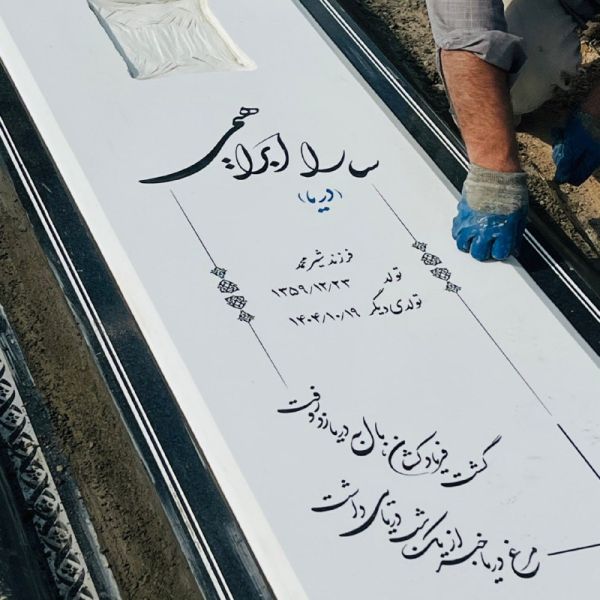 سارا ابراهیمی
(دریا)
فرزند شیرمحمد
تولد ۱۳۵۹/۱۲/۲۳
تولدی دیگر ۱۴۰۴/۱۰/۱۹
مرغ دریا خبر از یک شب دریایی داشت
گشت فریاد کشان، بال به دریا زد و رفت